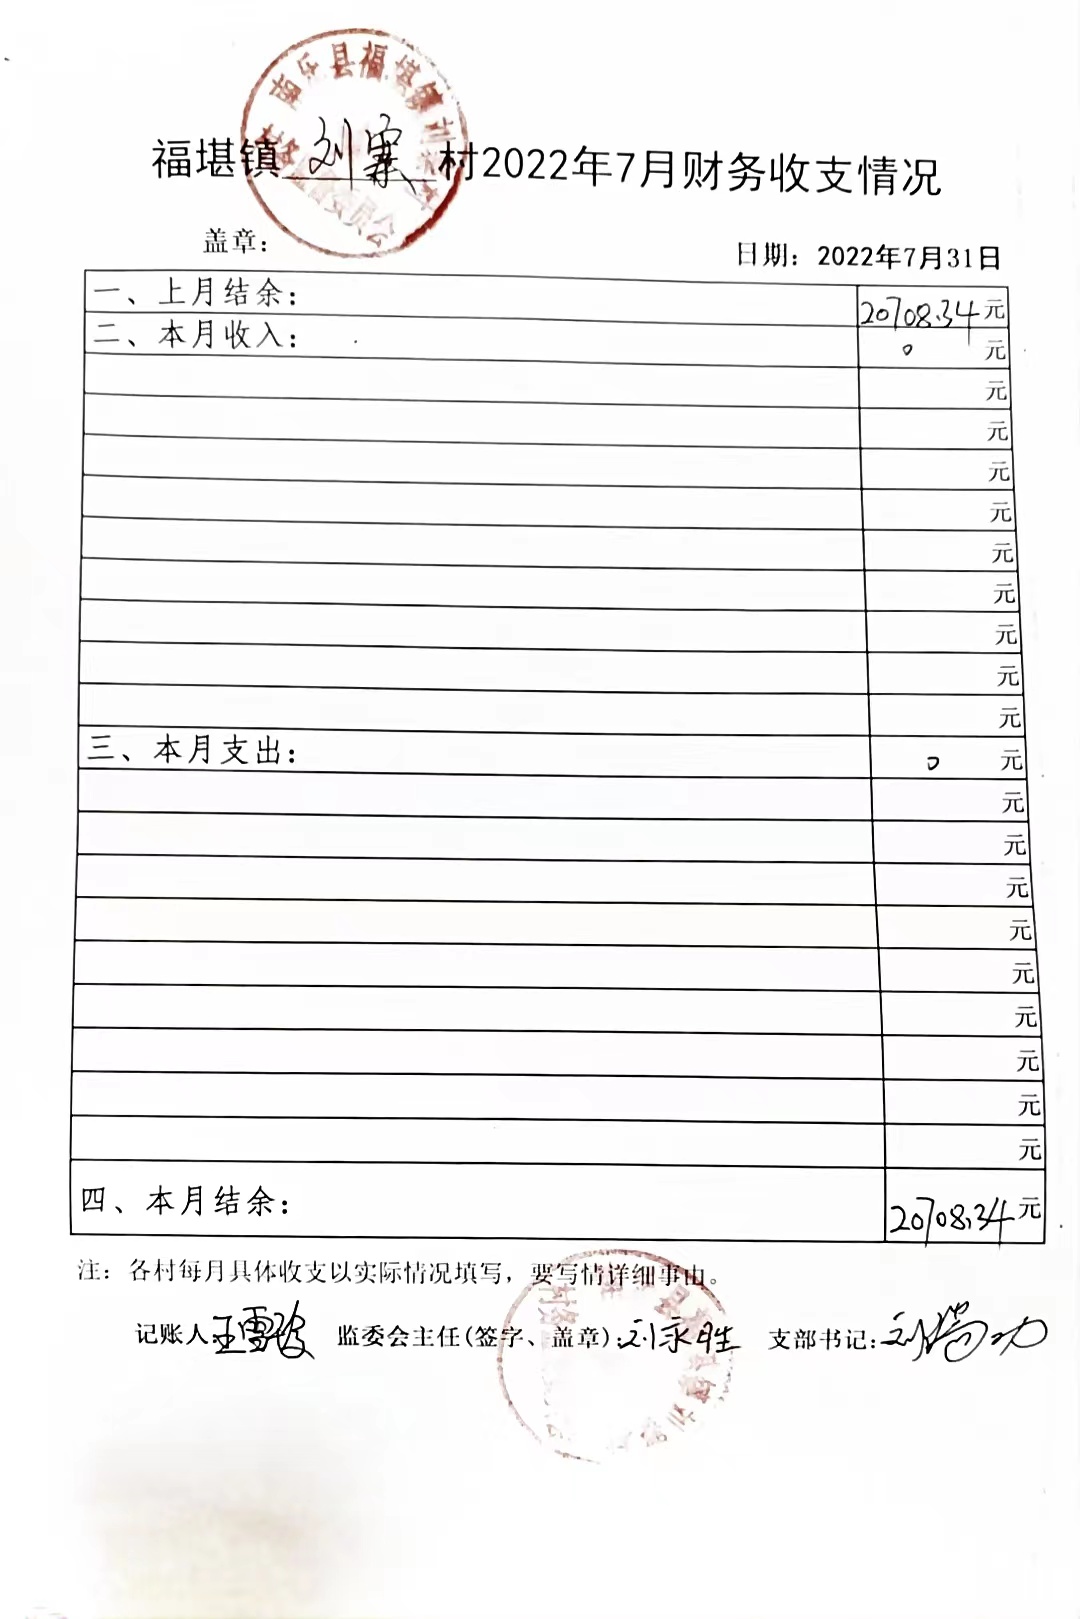 南乐县福堪镇刘寨村
福堪镇 刘寨 村2022年7月财务收支情况
盖章：
日期：2022年7月31日
一、上月结余： 20708.34元
二、本月收入： 0 元
元
元
元
元
元
元
元
元
元
三、本月支出： 0 元
元
元
元
元
元
元
元
元
元
四、本月结余： 20708.34元
注：各村每月具体收支以实际情况填写，要写情详细事由。
记账人：王雪 监委会主任(签字、盖章)：刘永胜 支部书记：刘瑞功